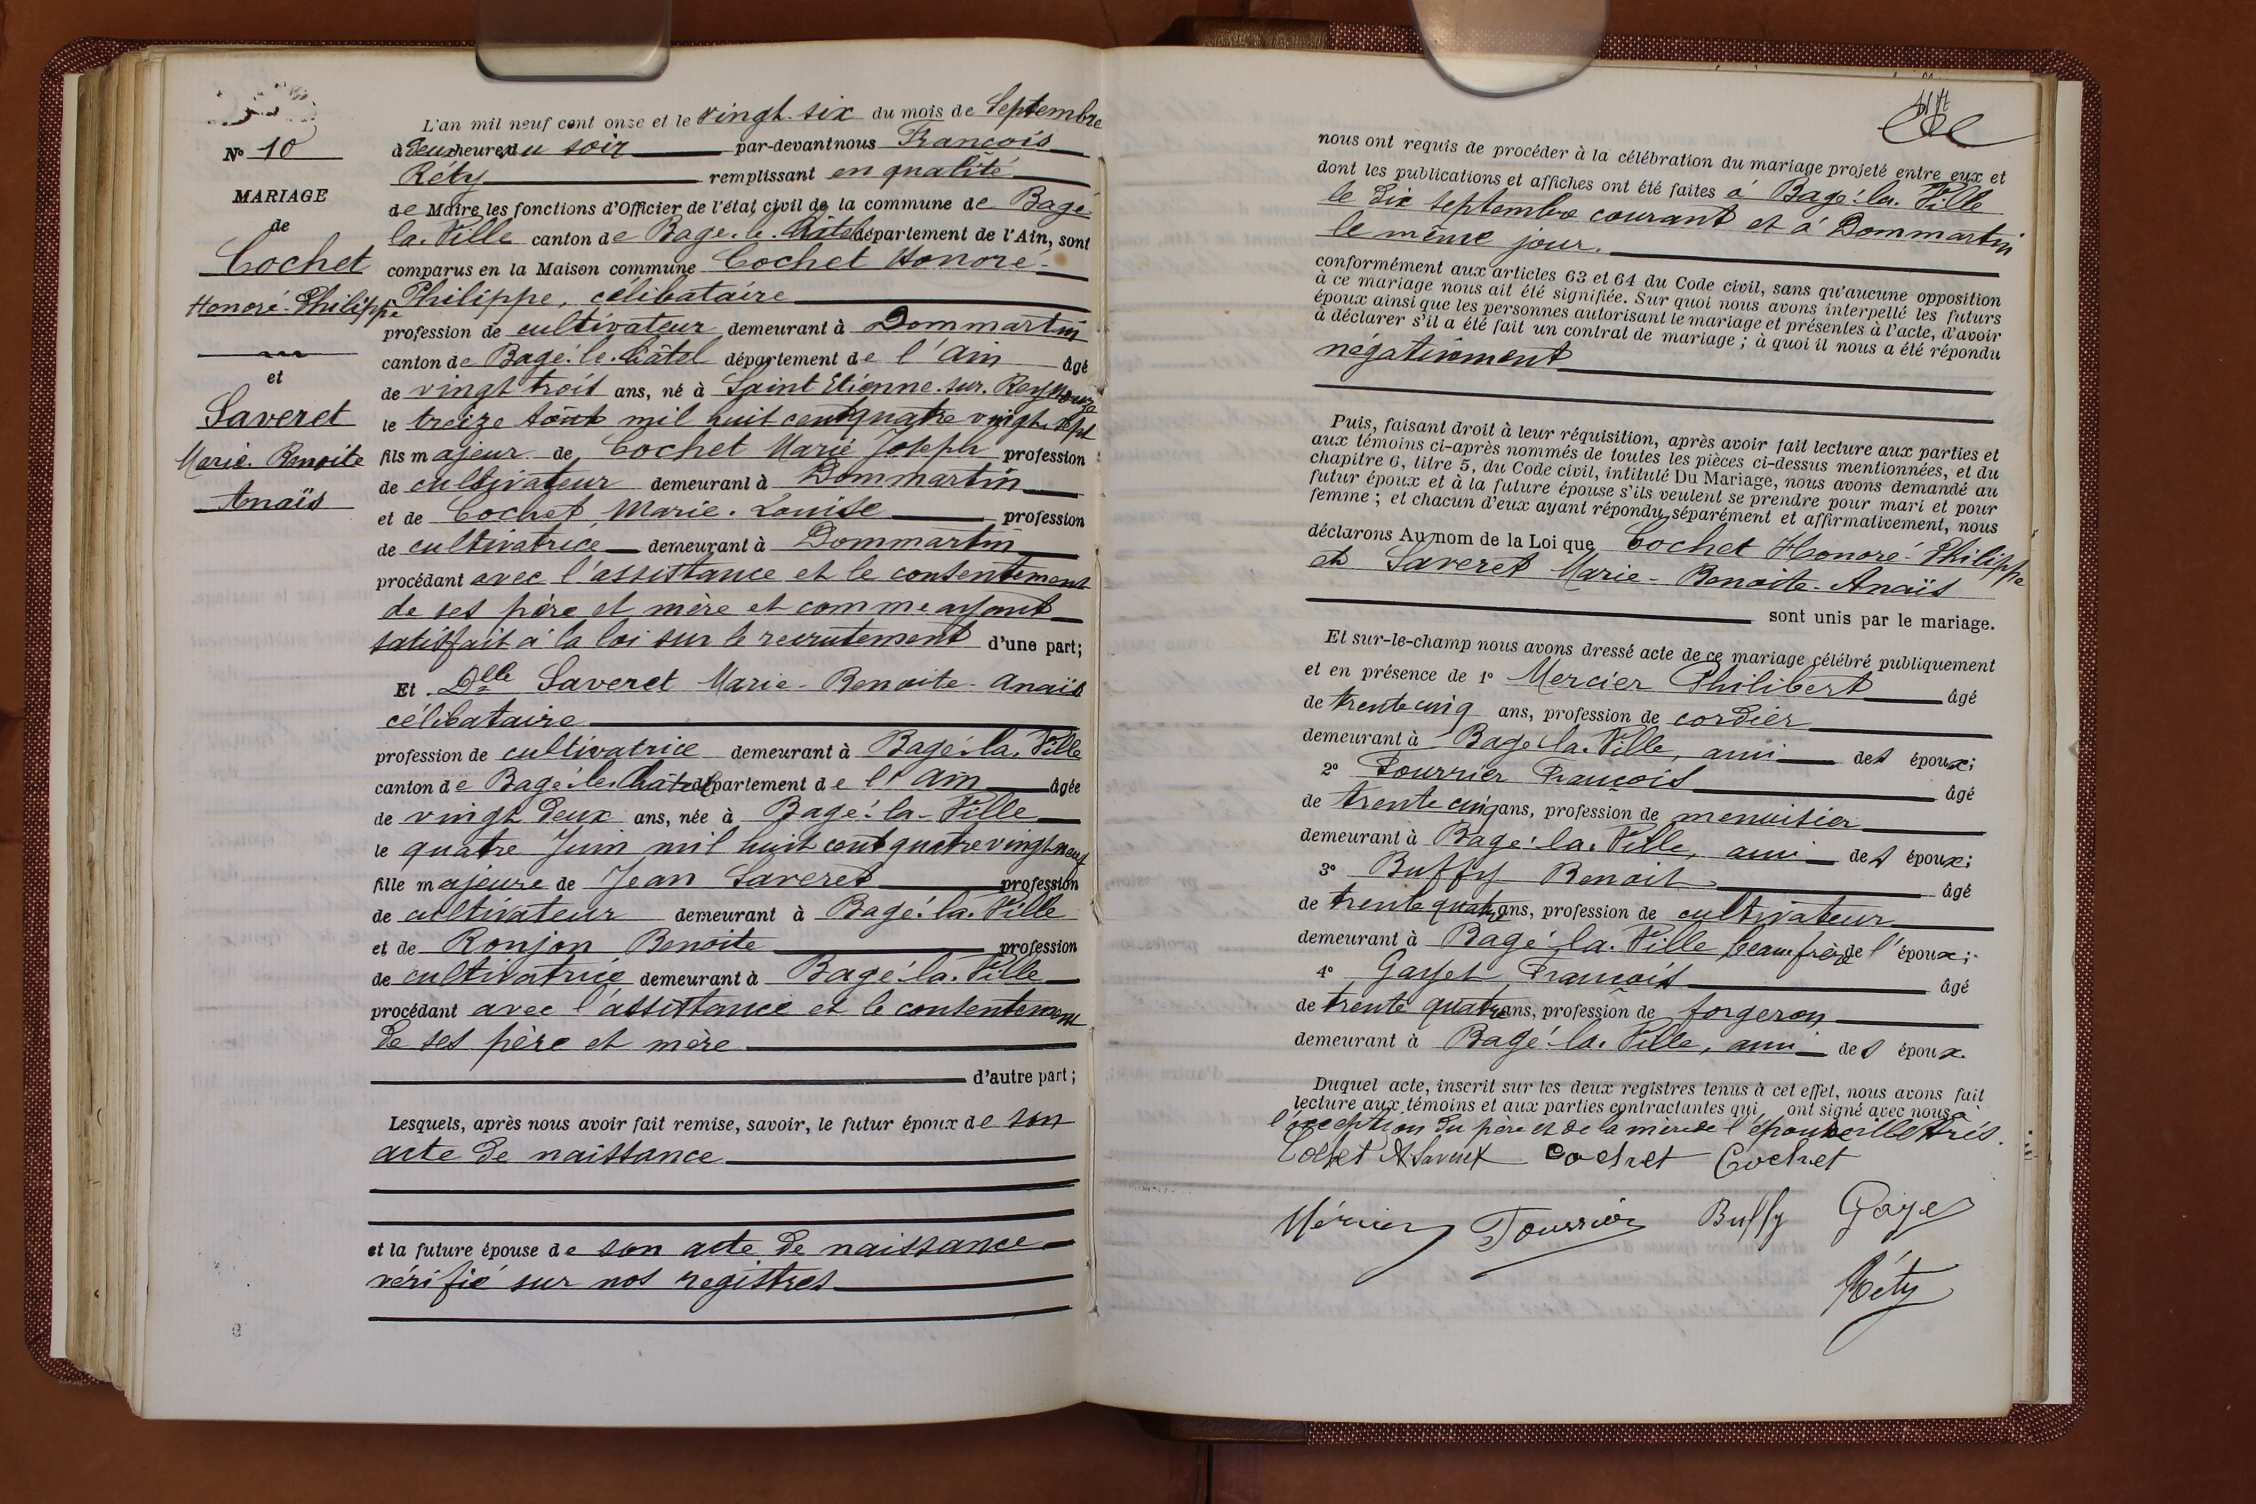 N° 10
MARIAGE
de
Cochet
Honoré-Philippe
et
Saveret
Marie-Benoite
Anaïs
L'an mil neuf cent onze et le vingt-six du mois de Septembre
à deux heures du soir par-devant nous François
Réty remplissant en qualité
de Maire les fonctions d'Officier de l'état civil de la commune de Bagé
la-Ville canton de Bagé-le-Châtel département de l'Ain, sont
comparus en la Maison commune Cochet Honoré-
Philippe, célibataire
profession de cultivateur demeurant à Dommartin
canton de Bagé-le-Châtel département de l'Ain âgé
de vingt trois ans, né à Saint Etienne-sur-Reyssouze
le treize août mil huit cent quatre vingt sept
fils majeur de Cochet Marie Joseph profession
de cultivateur demeurant à Dommartin
et de Cochet Marie-Louise profession
de cultivatrice demeurant à Dommartin
procédant avec l'assistance et le consentement
de ses père et mère et comme ayant
satisfait à la loi sur le recrutement d'une part;
Et Dlle Saveret Marie-Benoite-Anaïs
célibataire
profession de cultivatrice demeurant à Bagé-la-Ville
canton de Bagé-le-Châtel département de l'Ain âgée
de vingt deux ans, née à Bagé-la-Ville
le quatre Juin mil huit cent quatre vingt neuf
fille majeure de Jean Saveret profession
de cultivateur demeurant à Bagé-la-Ville
et de Ronjon Benoite profession
de cultivatrice demeurant à Bagé-la-Ville
procédant avec l'assistance et le consentement
de ses père et mère
d'autre part;
Lesquels, après nous avoir fait remise, savoir, le futur époux de son
acte de naissance
et la future épouse de son acte de naissance
vérifié sur nos registres
nous ont requis de procéder à la célébration du mariage projeté entre eux et
dont les publications et affiches ont été faites à Bagé-la-Ville
le dix septembre courant et à Dommartin
le même jour.
conformément aux articles 63 et 64 du Code civil, sans qu'aucune opposition
à ce mariage nous ait été signifiée. Sur quoi nous avons interpellé les futurs
époux ainsi que les personnes autorisant le mariage et présentes à l'acte, d'avoir
à déclarer s'il a été fait un contrat de mariage; à quoi il nous a été répondu
négativement
Puis, faisant droit à leur réquisition, après avoir fait lecture aux parties et
aux témoins ci-après nommés de toutes les pièces ci-dessus mentionnées, et du
chapitre 6, titre 5, du Code civil, intitulé Du Mariage, nous avons demandé au
futur époux et à la future épouse s'ils veulent se prendre pour mari et pour
femme; et chacun d'eux ayant répondu séparément et affirmativement, nous
déclarons Au nom de la Loi que Cochet Honoré-Philippe
et Saveret Marie-Benoite-Anaïs
sont unis par le mariage.
Et sur-le-champ nous avons dressé acte de ce mariage célébré publiquement
et en présence de 1° Mercier Philibert âgé
de trente cinq ans, profession de cordier
demeurant à Bagé-la-Ville, ami des époux;
2° Fourrier François âgé
de trente cinq ans, profession de menuisier
demeurant à Bagé-la-Ville, ami des époux;
3° Buffy Benoit âgé
de trente quatre ans, profession de cultivateur
demeurant à Bagé-la-Ville beau frère de l'époux;
4° Gayet François âgé
de trente quatre ans, profession de forgeron
demeurant à Bagé-la-Ville, ami des époux.
Duquel acte, inscrit sur les deux registres tenus à cet effet, nous avons fait
lecture aux témoins et aux parties contractantes qui ont signé avec nous à
l'exception du père et de la mère de l'épouse illettrés.
Cochet A Saveret Cochet Cochet
Mercier Fourrier Buffy Gayet
Réty